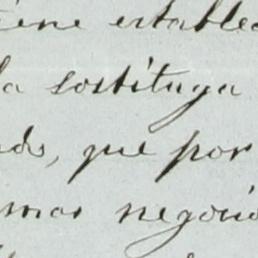 tiene estable
la sostituya
ads, que por
mas negoci